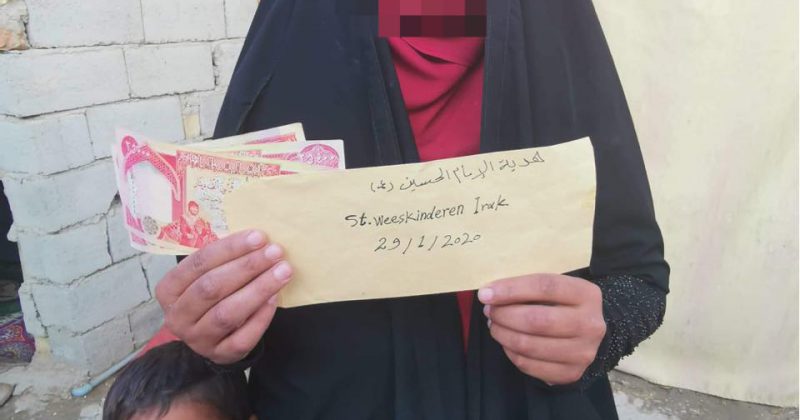 هدية الإمام الحسين (ع)
St. Weeskinderen Irak
29/1/2020